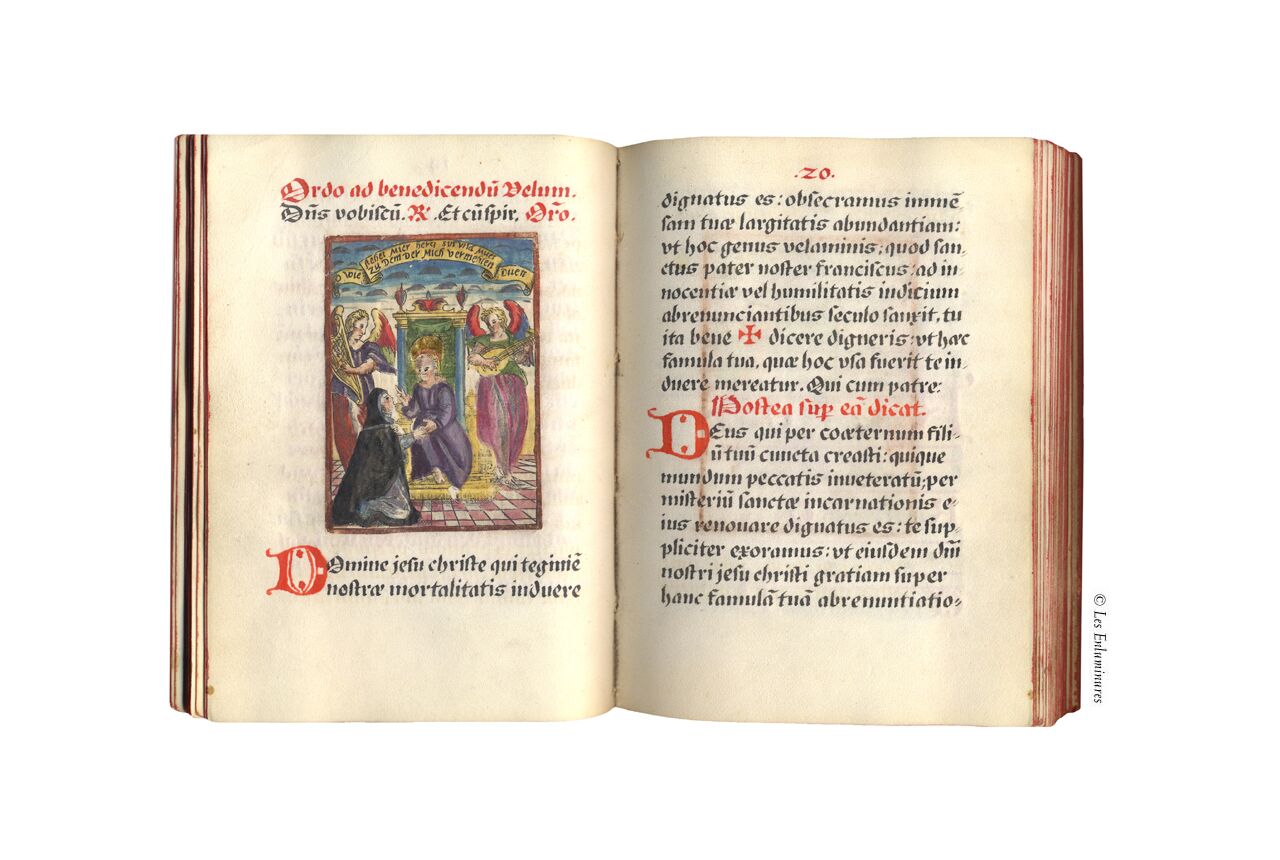 Ordo ad benedicendū Velum.
Dñs vobiscū. R. Et cūspir. Orõ.
zu Dem Der Mich vermehlen
Domine jesu christe qui teginiē
nostræ mortalitatis induere
.20.
dignatus es: obsecramus immē
sam tuæ largitatis abundantiam:
vt hoc genus velaminis; quod san-
ctus pater noster franciscus: ad in-
nocentiæ vel humilitatis indicium
abrenunciantibus seculo sanxit, tu
ita bene ✠ dicere digneris: vt hæc
famula tua, quæ hoc vsa fuerit te in-
duere mereatur. Qui cum patre:
Postea sup eā dicat.
DEus qui per coæternum fili-
ū tuū cuncta creasti: quique
mundum peccatis inveteratū; per
misteriū sanctæ incarnationis e-
ius renouare dignatus es: te sup-
pliciter exoramus: vt eiusdem dm̄
nostri jesu christi gratiam super
hanc famulā tuā abrenuntiatio-
© Les Enluminures